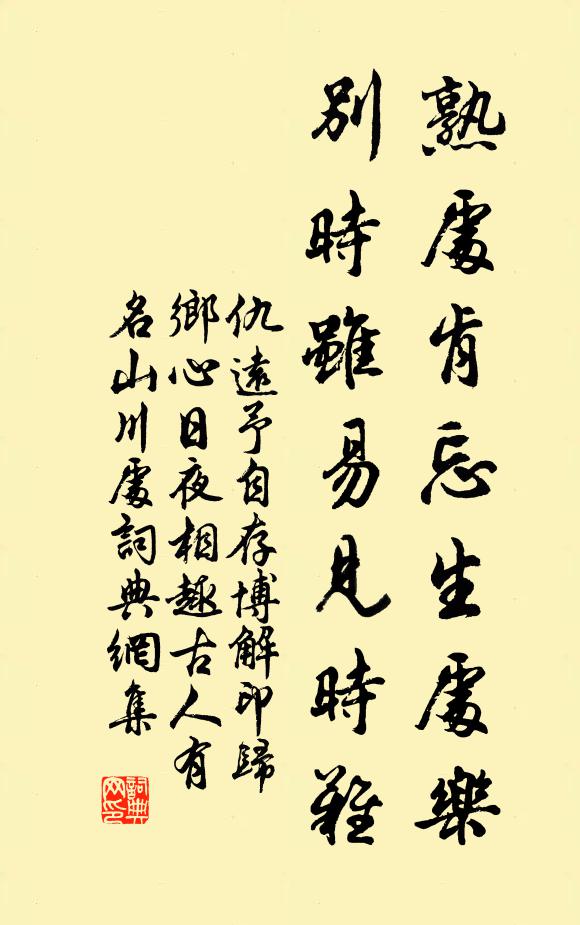 熟處肯忘生處樂
別時雖易見時難
仇遠予自存博解印歸
鄉心日夜相趣古人有
名山川處詞典網集
詞典網印